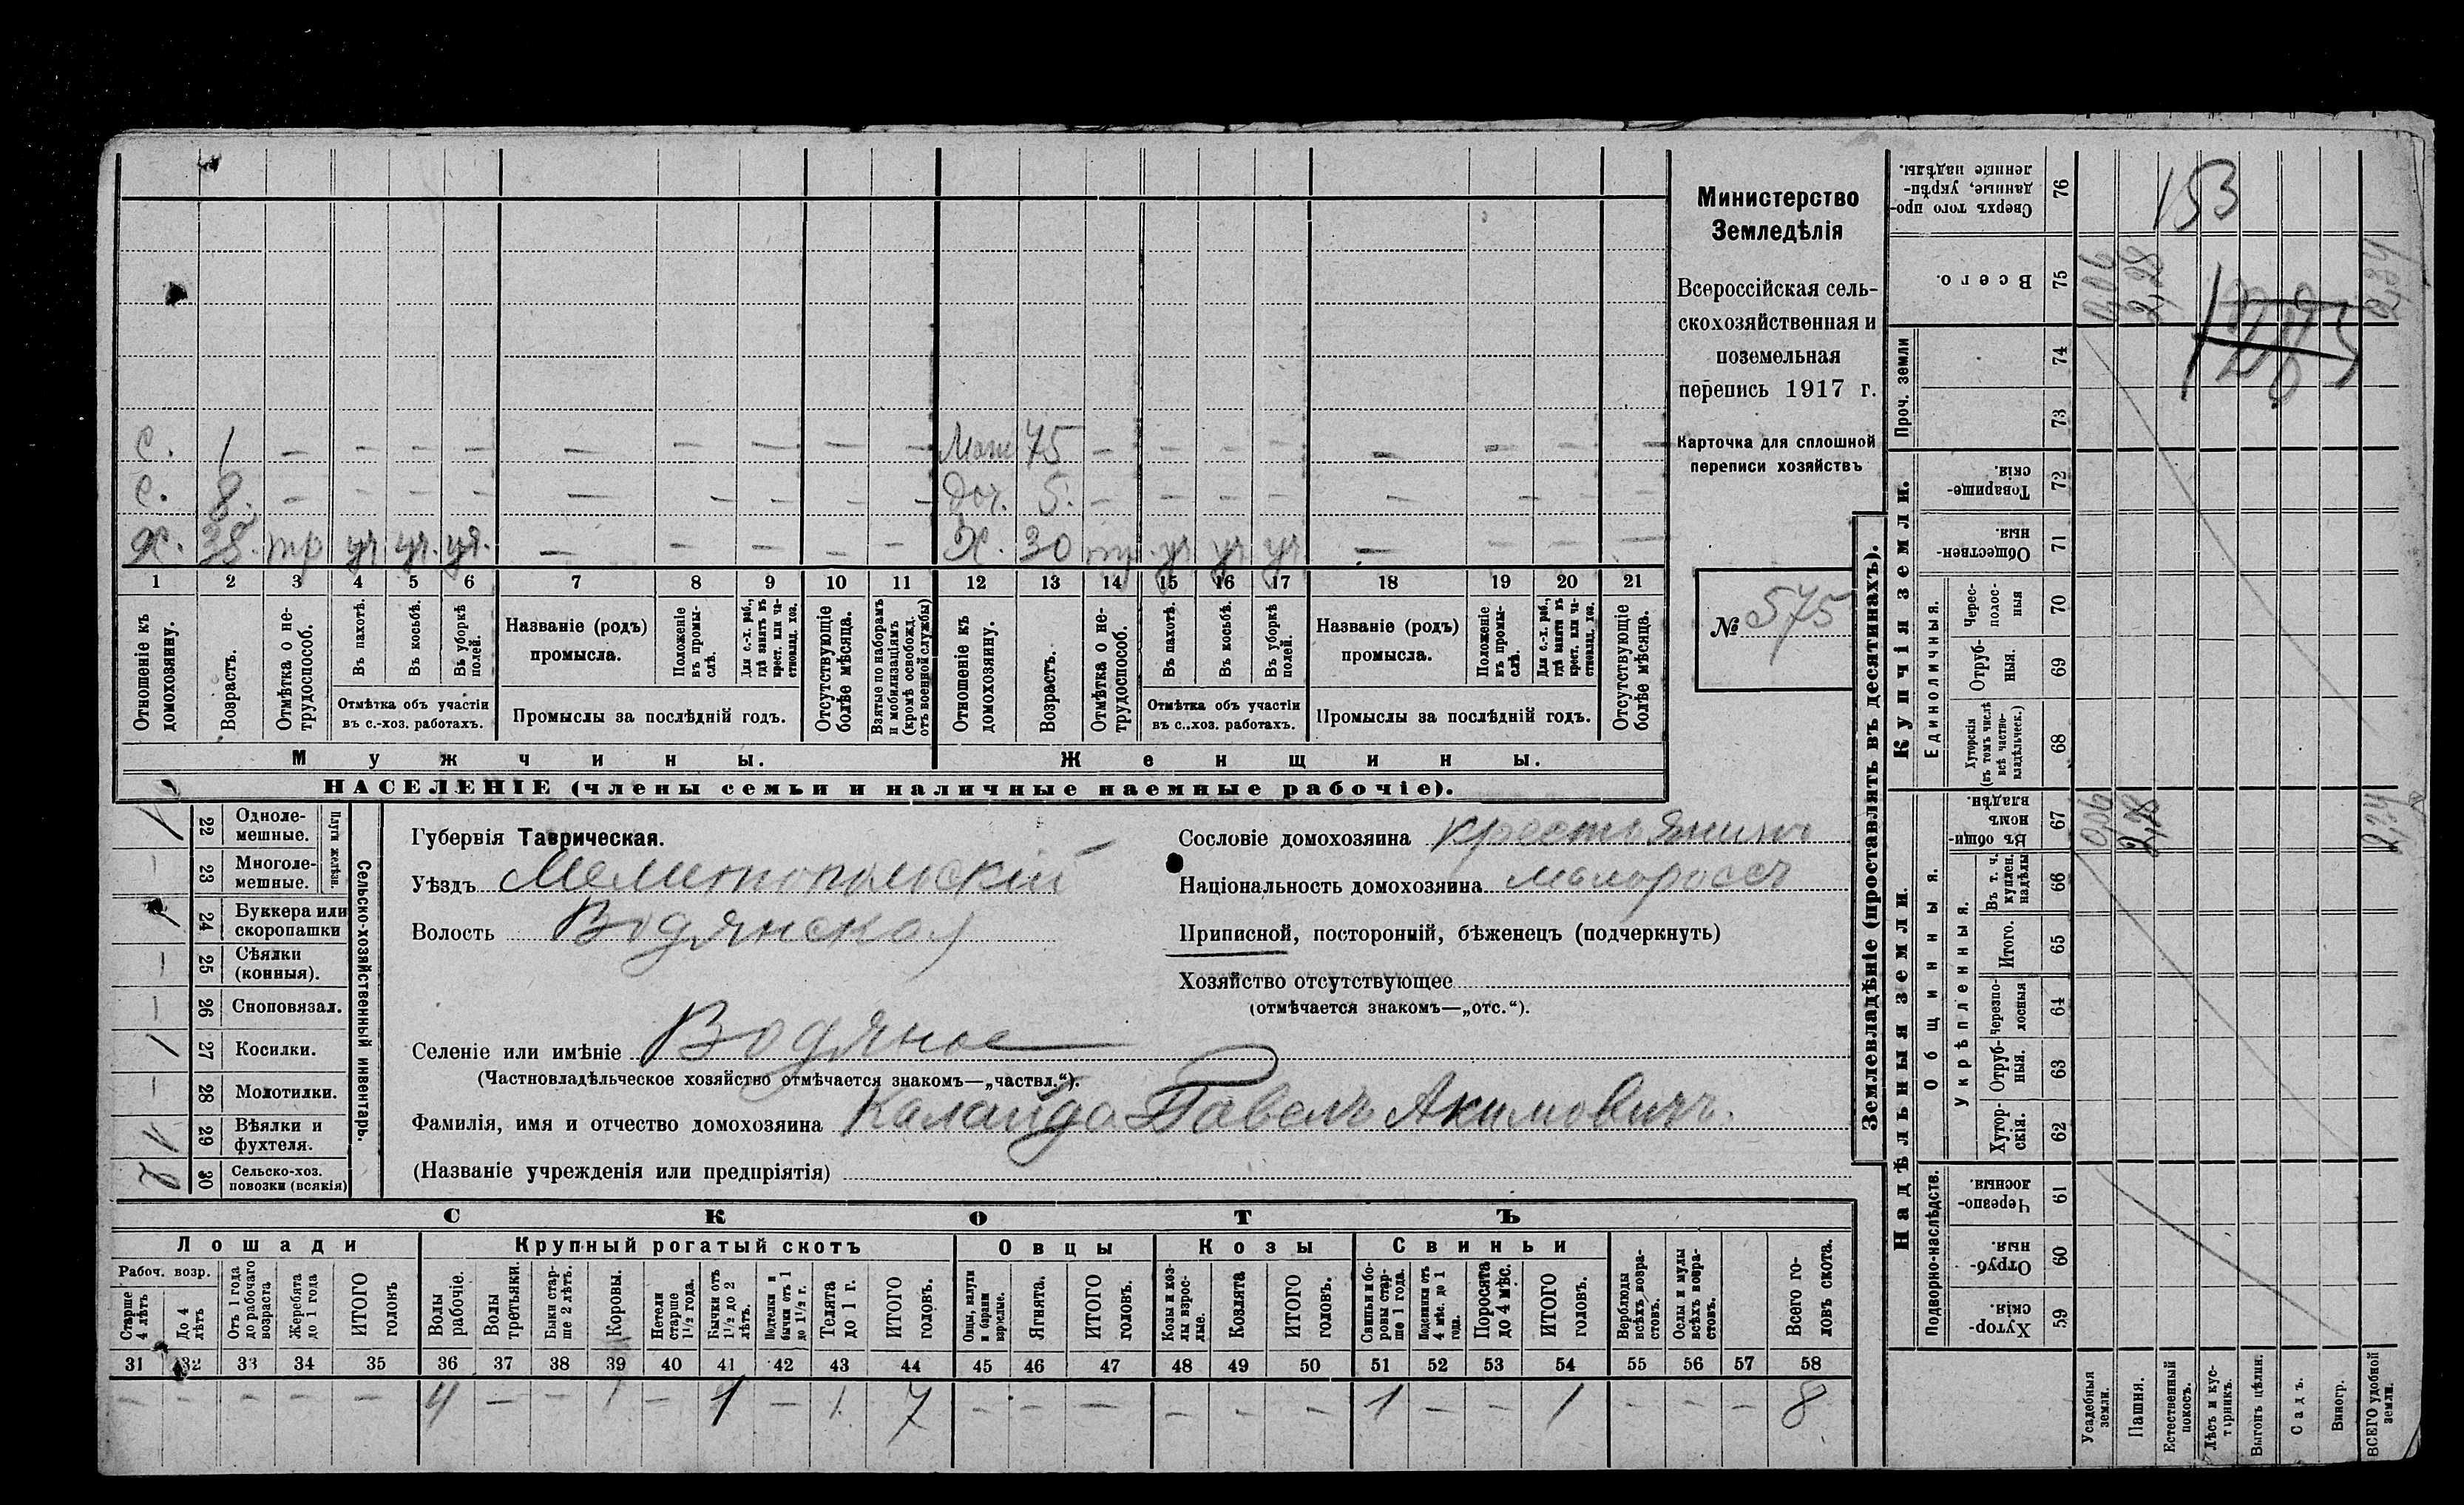 Министерство
Земледѣлія
Всероссійская сель-
скохозяйственная и
поземельная
перепись 1917 г.
Карточка для сплошной
переписи хозяйствъ
№ 575
с. 1 — — — — — — — — — Мат 75 — — — — — — — —
с. 8. — — — — — — — — — Доч. 5. — — — — — — — —
Х. 38. тр уч. уч. уч. — — — — — Х. 30 тр уч уч уч — — — —
1 2 3 4 5 6 7 8 9 10 11 12 13 14 15 16 17 18 19 20 21
Отношеніе къ домохозяину.
Возрастъ.
Отмѣтка о не-трудоспособ.
Въ пахотѣ.
Въ косьбѣ.
Въ уборкѣ полей.
Отмѣтка объ участіи
въ с.-хоз. работахъ.
Названіе (родъ)
промысла.
Положеніе въ промы-слѣ.
Для с.-х. раб., гдѣ занятъ въ крест. или ча-стновлад. хоз.
Промыслы за послѣдній годъ.
Отсутствующіе болѣе мѣсяца.
Взятые по наборамъ и мобилизаціямъ (кромѣ освобожд. отъ военной службы)
Отношеніе къ домохозяину.
Возрастъ.
Отмѣтка о не-трудоспособ.
Въ пахотѣ.
Въ косьбѣ.
Въ уборкѣ полей.
Отмѣтка объ участіи
въ с..хоз. работахъ.
Названіе (родъ)
промысла.
Положеніе въ промы-слѣ.
Для с.-х. раб., гдѣ занята въ крест. или ча-стновлад. хоз.
Промыслы за послѣдній годъ.
Отсутствующіе болѣе мѣсяца.
Мужчины.
Женщины.
НАСЕЛЕНІЕ (члены семьи и наличные наемные рабочіе).
Сельско-хозяйственный инвентарь.
Плуги желѣзн.
1 22 Однолемешные.
— 23 Многолемешные.
1 24 Буккера или скоропашки
— 25 Сѣялки (конныя).
— 26 Сноповязал.
1 27 Косилки.
— 28 Молотилки.
1 29 Вѣялки и фухтеля.
2 30 Сельско-хоз. повозки (всякія)
Губернія Таврическая.
Уѣздъ Мелитопольскій
Волость Водянская
Селеніе или имѣніе Водяное
(Частновладѣльческое хозяйство отмѣчается знакомъ—„частвл.“).
Фамилія, имя и отчество домохозяина Калайда Павелъ Акимовичъ.
(Названіе учрежденія или предпріятія)
Сословіе домохозяина крестьянинъ
Національность домохозяина малороссъ
Приписной, посторонній, бѣженецъ (подчеркнуть)
Хозяйство отсутствующее
(отмѣчается знакомъ—„отс.“).
СКОТЪ
Лошади
Крупный рогатый скотъ
Овцы
Козы
Свиньи
Рабоч. возр.
Старше 4 лѣтъ
До 4 лѣтъ
Отъ 1 года до рабочаго возраста
Жеребята до 1 года
ИТОГО головъ
Волы рабочіе.
Волы третьяки.
Быки стар-ше 2 лѣтъ.
Коровы.
Нетели старше 1½ года.
Бычки отъ 1½ до 2 лѣтъ.
Подтелки и бычки отъ 1 до 1½ г.
Телята до 1 г.
ИТОГО головъ.
Овцы, валухи и бараны взрослые.
Ягнята.
ИТОГО головъ.
Козы и коз-лы взрос-лые.
Козлята
ИТОГО головъ.
Свиньи и бо-ровы стар-ше 1 года.
Подсвинки отъ 4 мѣс. до 1 года.
Поросята до 4 мѣс.
ИТОГО головъ.
Верблюды всѣхъ возра-стовъ.
Ослы и мулы всѣхъ возра-стовъ.
Всего го-ловъ скота.
31 32 33 34 35 36 37 38 39 40 41 42 43 44 45 46 47 48 49 50 51 52 53 54 55 56 57 58
— — — — — 4 — — 1 — 1 — 1. 7 — — — — — — 1 — — 1 — — — 8
Землевладѣніе (проставлять въ десятинахъ).
Надѣльныя земли.
Купчія земли.
Проч. земли
Подворно-наслѣдств.
Общинныя.
Укрѣпленныя.
Единоличныя.
76 Сверхъ того про-данные, укрѣп-ленные надѣлы.
75 Всего.
74
73
72 Товарище-скія.
71 Обществен-ныя
70 Черес-полос-ныя
69 Отруб-ныя.
68 Хуторскія (въ томъ числѣ всѣ частно-владѣльческ.)
67 Въ общин-номъ владѣн.
66 Въ т. ч. куплен. надѣлы
65 Итого.
64 Черезпо-лосныя
63 Отруб-ныя.
62 Хутор-скія.
61 Черезпо-лосныя
60 Отруб-ныя.
59 Хутор-скія.
153
1285
0,06 2,28 2,34
0,06 2,28 2,34
Усадебныя земли.
Пашня.
Естественный покосъ.
Лѣсъ и кус-тарникъ.
Выгонъ цѣлин.
Садъ.
Виногр.
ВСЕГО удобной земли.